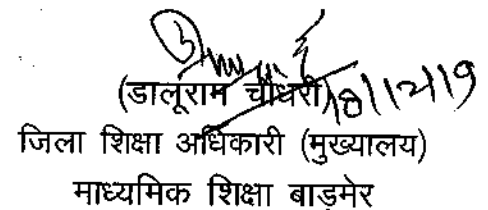 (डालूराम चौधरी) 10/12/19
जिला शिक्षा अधिकारी (मुख्यालय)
माध्यमिक शिक्षा बाड़मेर